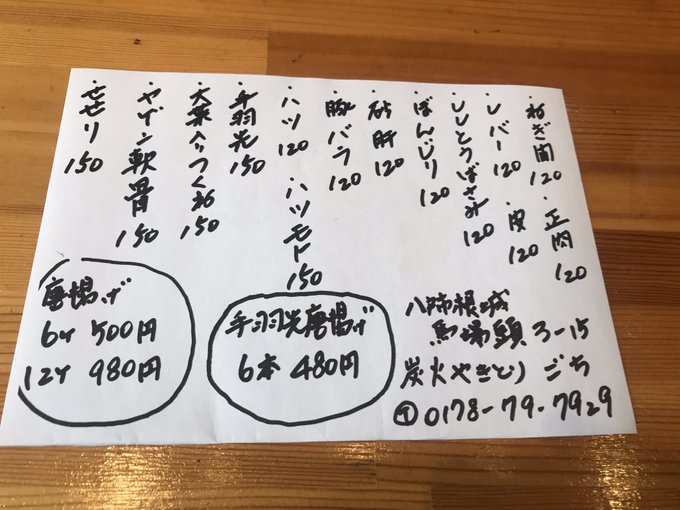 ・ねぎ間 120
・正肉 120
・レバー 120
・皮 120
・ししとうばさみ 120
・ぼんじり 120
・砂肝 120
・豚バラ 120
・ハツ 120
・ハツモト 150
・手羽先 150
・大葉入りつくね 150
・ヤゲン軟骨 150
・せせり 150
唐揚げ
6ケ 500円
12ケ 980円
手羽先唐揚げ
6本 480円
八市根城
馬場頭3-15
炭火やきとり ごち
0178-79-7929